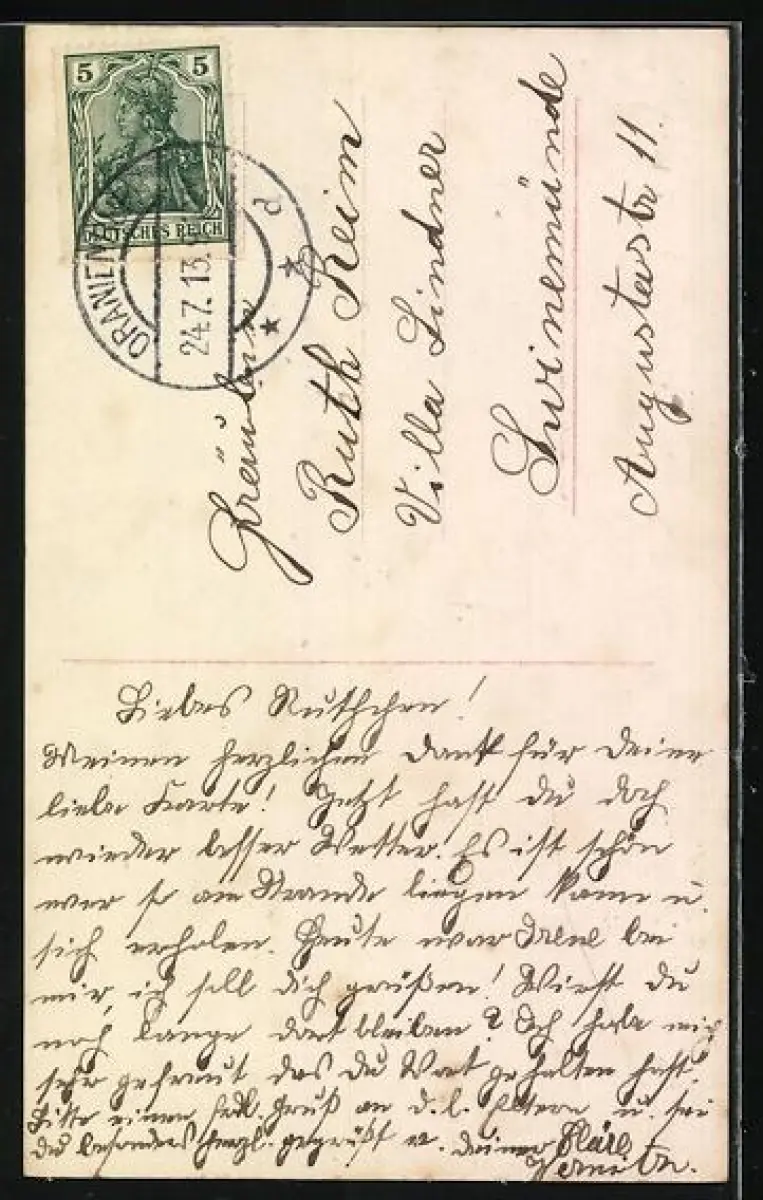 5 5
DEUTSCHES REICH
ORANIEN
24.7.13.
d
Fräulein
Ruth Reim
Villa Lindner
Swinemünde
Augustastr 11.
Liebes Ruthchen!
Meinen herzlichen Dank für deine
liebe Karte! Jetzt hast du doch
wieder besser Wetter. Es ist schön
wer so am Strande liegen kann u.
sich erholen. Heute war Irene bei
mir, ich soll dich grüßen! Wirst du
noch lange dort bleiben? Ich habe mich
sehr gefreut das du Wort gehalten hast!
Bitte einen frdl. Gruß an d. l. Eltern u. sei
du besonders herzl. gegrüßt v. deiner Kläre